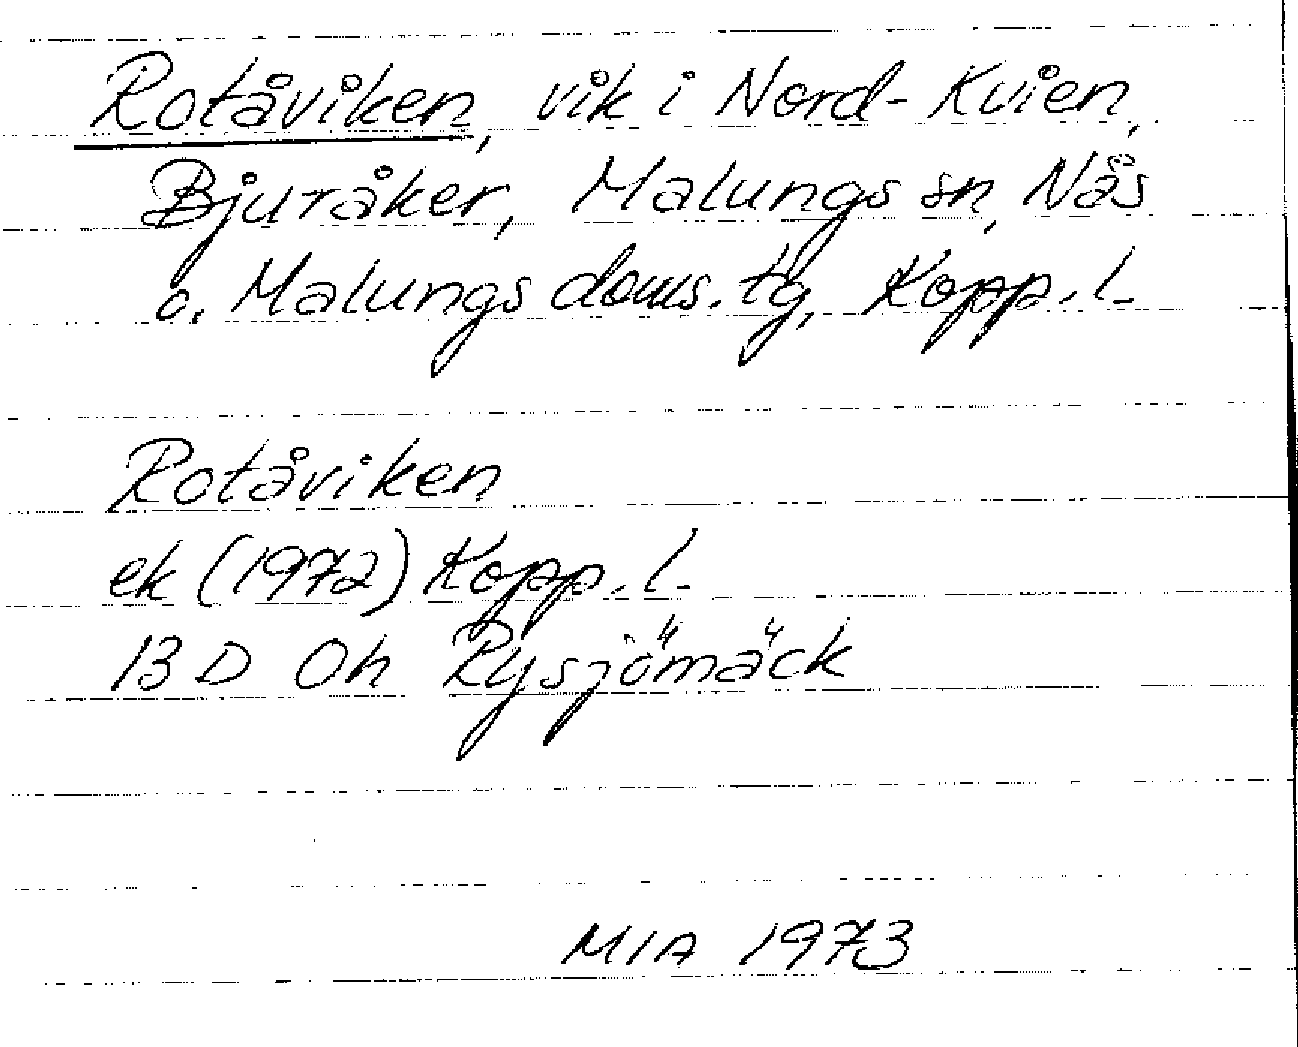 Rotåviken, vik i Nord-Kvien,
Bjuråker, Malungs sn, Nås
o. Malungs doms. tg, Kopp. l.
Rotåviken
ek (1972) Kopp. l.
13 D 0h Rysjömäck
MIA 1973